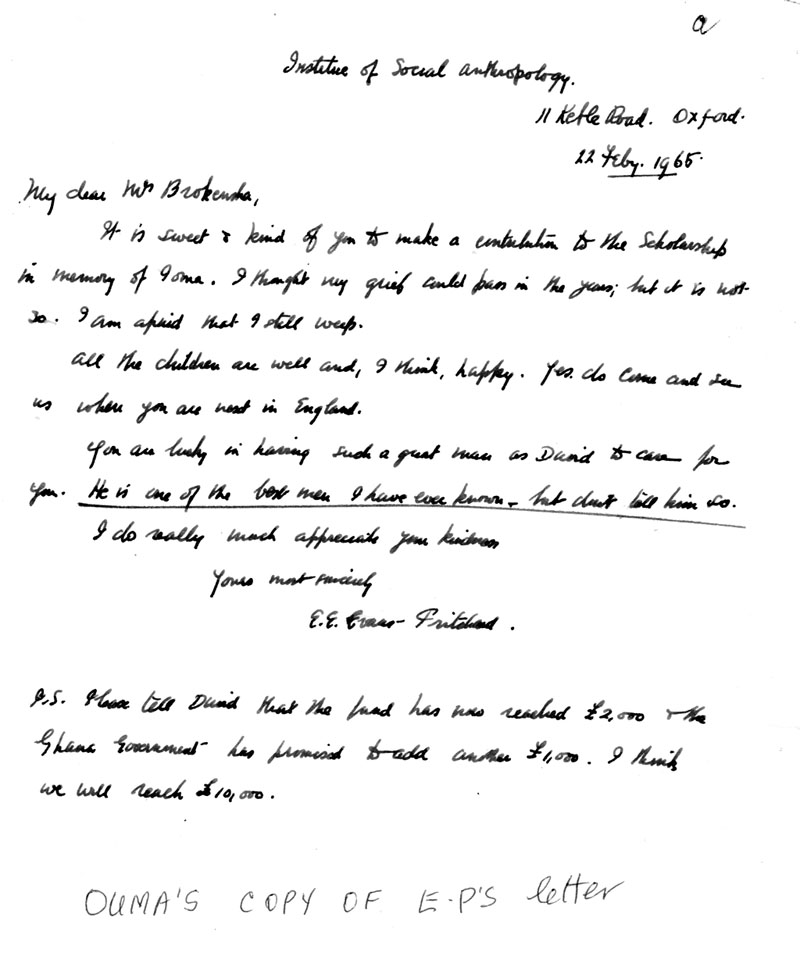 a
Institue of Social Anthropology.
11 Keble Road. Oxford.
22 Feby. 1965.
My dear Mrs Brokensha,
It is sweet & kind of you to make a contribution to the Scholarship
in memory of Ioma. I thought my grief could pass in the years; but it is not
so. I am afraid that I still weep.
All the children are well and, I think, happy. Yes. do come and see
us when you are next in England.
You are lucky in having such a great man as David to care for
you. He is one of the best men I have ever known - but don't tell him so.
I do really much appreciate your kindness
Yours most sincerely
E.E. Evans-Pritchard.
P.S. Please tell David that the fund has now reached £2,000 & the
Ghana Government has promised to add another £1,000. I think
we will reach £10,000.
OUMA'S COPY OF E-P'S letter